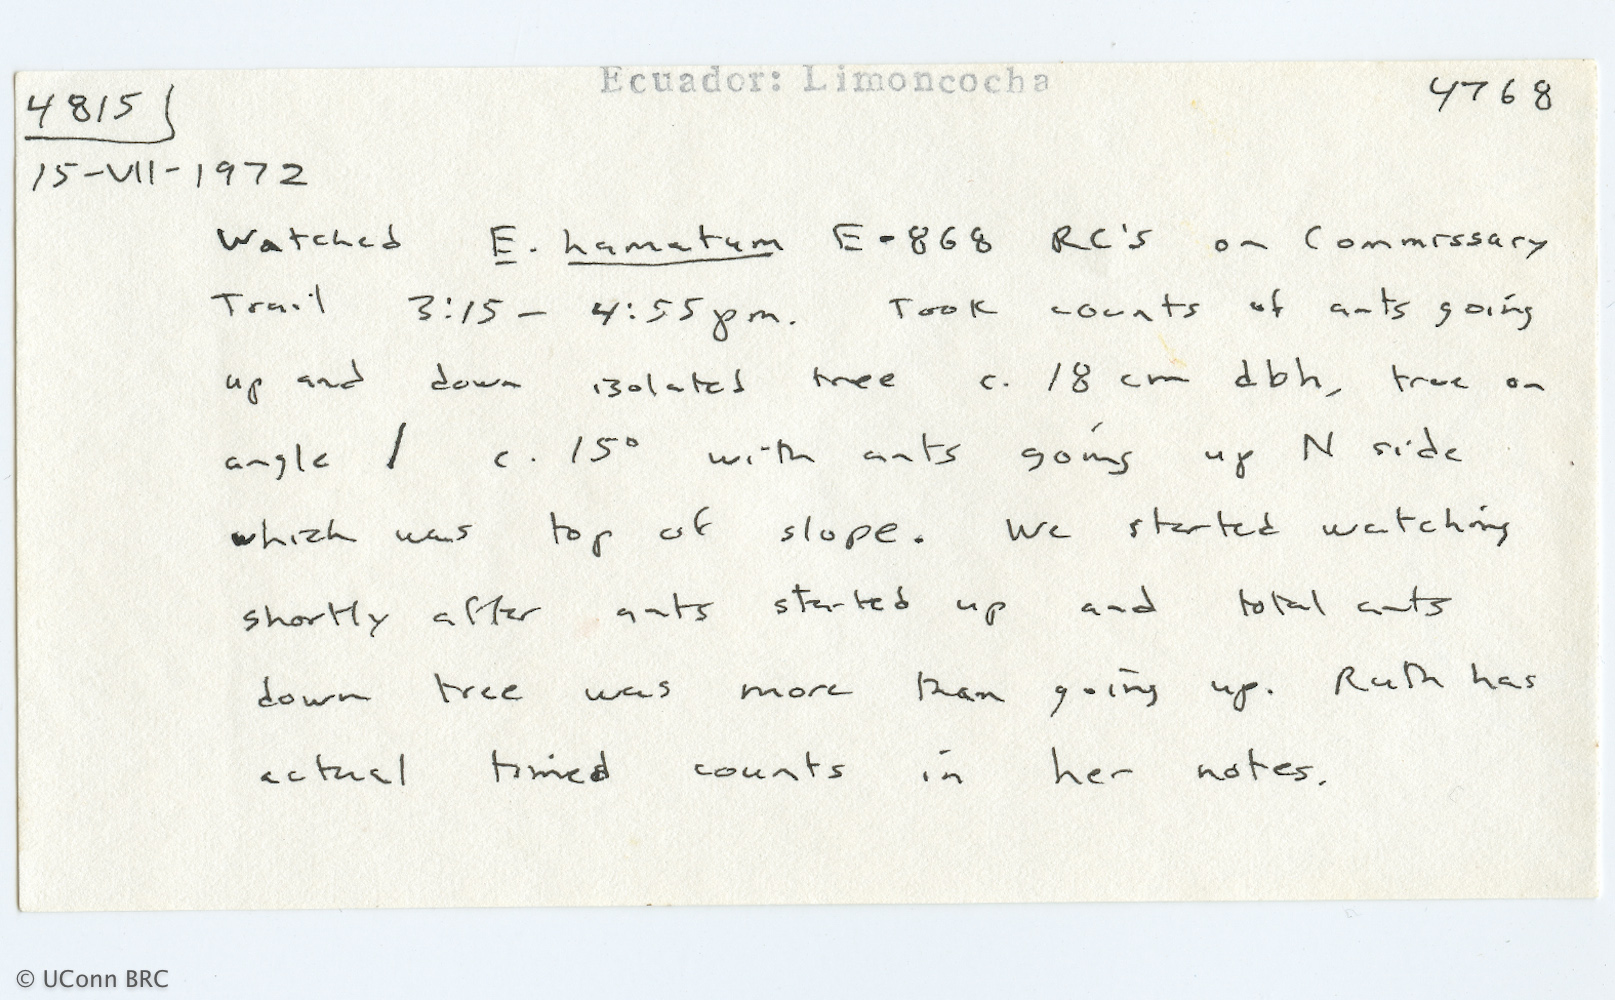 Ecuador: Limoncocha
4815
4768
15-VII-1972
Watched E. hamatum E-868 RC's on Commissary
Trail 3:15 - 4:55 pm. Took counts of ants going
up and down isolated tree c. 18 cm dbh, tree on
angle / c. 15° with ants going up N side
which was top of slope. We started watching
shortly after ants started up and total ants
down tree was more than going up. Ruth has
actual timed counts in her notes.
© UConn BRC